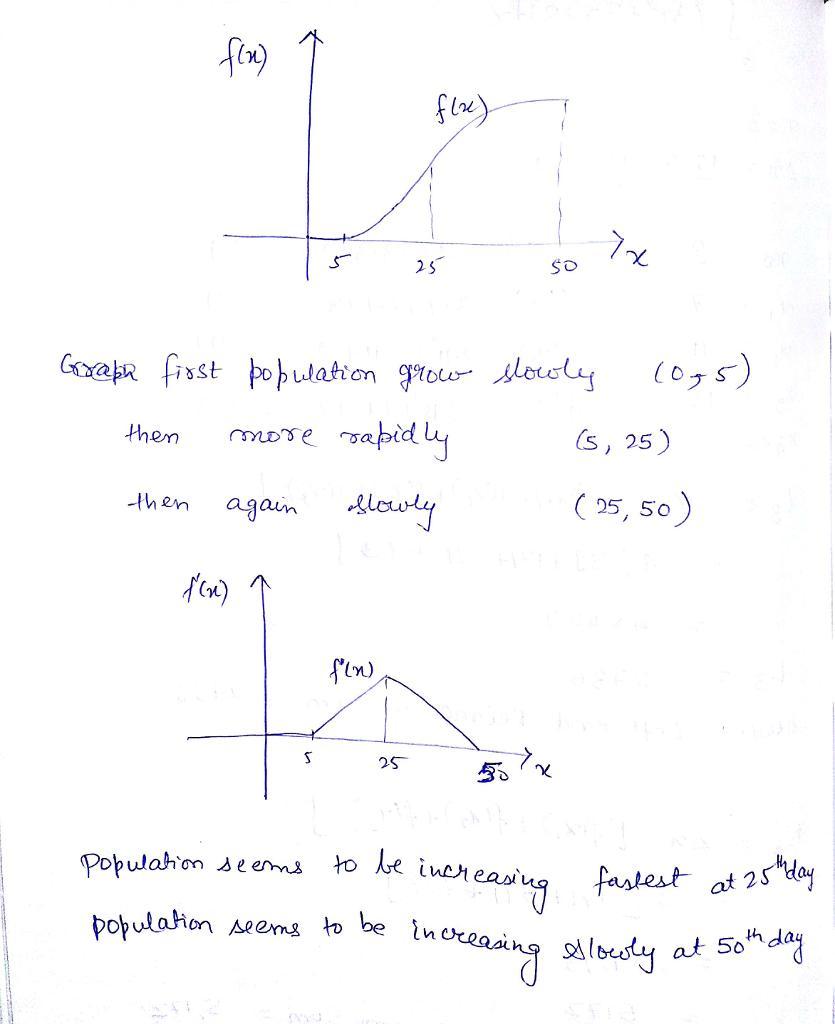 f(x)
f(x)
5 25 50 x
Graph first population grow slowly (0,5)
then more rapidly (5, 25)
then again slowly (25, 50)
f'(x)
f'(x)
5 25 50 x
Population seems to be increasing fastest at 25th day
population seems to be increasing slowly at 50th day